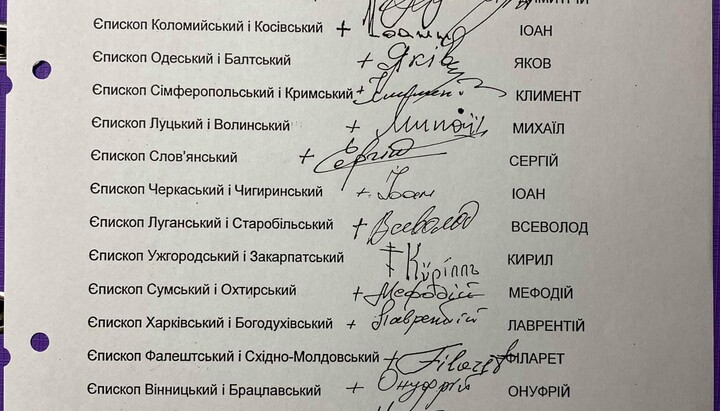 ДИМИТРІЙ
Єпископ Коломийський і Косівський + Іоаннъ ІОАН
Єпископ Одеський і Балтський + Яків ЯКОВ
Єпископ Сімферопольський і Кримський + Климент КЛИМЕНТ
Єпископ Луцький і Волинський + Михаїл МИХАЇЛ
Єпископ Слов'янський + Сергій СЕРГІЙ
Єпископ Черкаський і Чигиринський + Іоан ІОАН
Єпископ Луганський і Старобільський + Всеволод ВСЕВОЛОД
Єпископ Ужгородський і Закарпатський + Кѷріллъ КИРИЛ
Єпископ Сумський і Охтирський + Мефодій МЕФОДІЙ
Єпископ Харківський і Богодухівський + Лаврентій ЛАВРЕНТІЙ
Єпископ Фалештський і Східно-Молдовський + Filaret ФІЛАРЕТ
Єпископ Вінницький і Брацлавський + Онуфрій ОНУФРІЙ